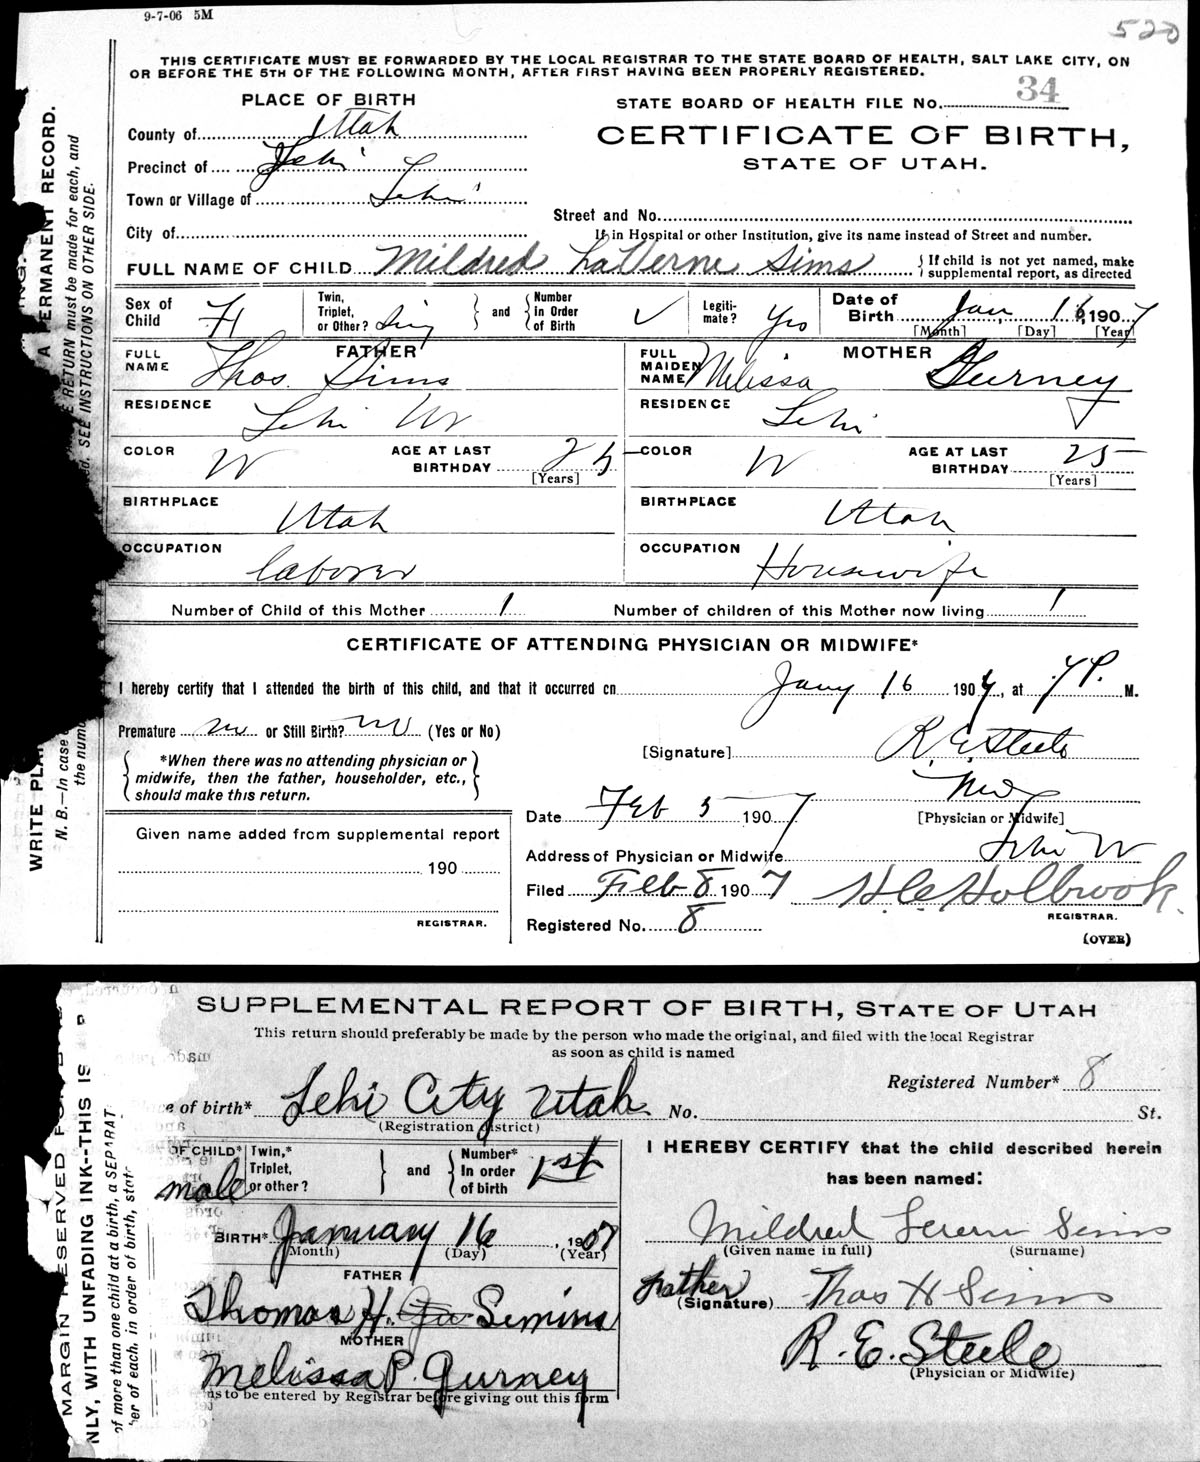 9-7-06 5M
520
THIS CERTIFICATE MUST BE FORWARDED BY THE LOCAL REGISTRAR TO THE STATE BOARD OF HEALTH, SALT LAKE CITY, ON
OR BEFORE THE 5TH OF THE FOLLOWING MONTH, AFTER FIRST HAVING BEEN PROPERLY REGISTERED.
PLACE OF BIRTH
STATE BOARD OF HEALTH FILE No. 34
County of Utah
CERTIFICATE OF BIRTH,
STATE OF UTAH.
Precinct of Lehi
Town or Village of Lehi
Street and No.
City of
If in Hospital or other Institution, give its name instead of Street and number.
FULL NAME OF CHILD Mildred LaVerne Sims { If child is not yet named, make supplemental report, as directed
Sex of Child
Twin, Triplet, or Other? Sing } and { Number in Order of Birth ✓
Legitimate? Yes
Date of Birth Jan 16, 1907
[Month] [Day] [Year]
FATHER
FULL NAME Thos. Sims
MOTHER
FULL MAIDEN NAME Melissa Gurney
RESIDENCE Lehi
RESIDENCE Lehi
COLOR W AGE AT LAST BIRTHDAY 25 [Years]
COLOR W AGE AT LAST BIRTHDAY 25 [Years]
BIRTHPLACE Utah
BIRTHPLACE Utah
OCCUPATION laborer
OCCUPATION Housewife
Number of Child of this Mother 1 Number of children of this Mother now living 1
CERTIFICATE OF ATTENDING PHYSICIAN OR MIDWIFE*
I hereby certify that I attended the birth of this child, and that it occurred on Jany 16 1907, at 7 P. M.
Premature no or Still Birth? no (Yes or No)
[Signature] R. E. Steele
*When there was no attending physician or
midwife, then the father, householder, etc.,
should make this return.
Date Feb 5 1907
[Physician or Midwife]
Given name added from supplemental report
190
REGISTRAR.
Address of Physician or Midwife Lehi
Filed Feb 8 1907 H. C. Holbrook
REGISTRAR.
Registered No. 8
(OVER)
A PERMANENT RECORD.
RETURN must be made for each, and
SEE INSTRUCTIONS ON OTHER SIDE.
WRITE PLA
N. B.—In case
the num
SUPPLEMENTAL REPORT OF BIRTH, STATE OF UTAH
This return should preferably be made by the person who made the original, and filed with the local Registrar
as soon as child is named
Registered Number* 8
of birth* Lehi City Utah No. St.
(Registration district)
OF CHILD* male
Twin,* Triplet, or other? } and { Number* In order of birth 1st
I HEREBY CERTIFY that the child described herein
has been named:
BIRTH* January 16, 1907
(Month) (Day) (Year)
Mildred Sims
(Given name in full) (Surname)
FATHER
Thomas H. Simms
Father
(Signature) Thos H Sims
MOTHER
Melissa P. Gurney
R. E. Steele
(Physician or Midwife)
ns to be entered by Registrar before giving out this form
MARGIN RESERVED FOR
NLY, WITH UNFADING INK--THIS IS
of more than one child at a birth, a SEPARAT
er of each, in order of birth, state